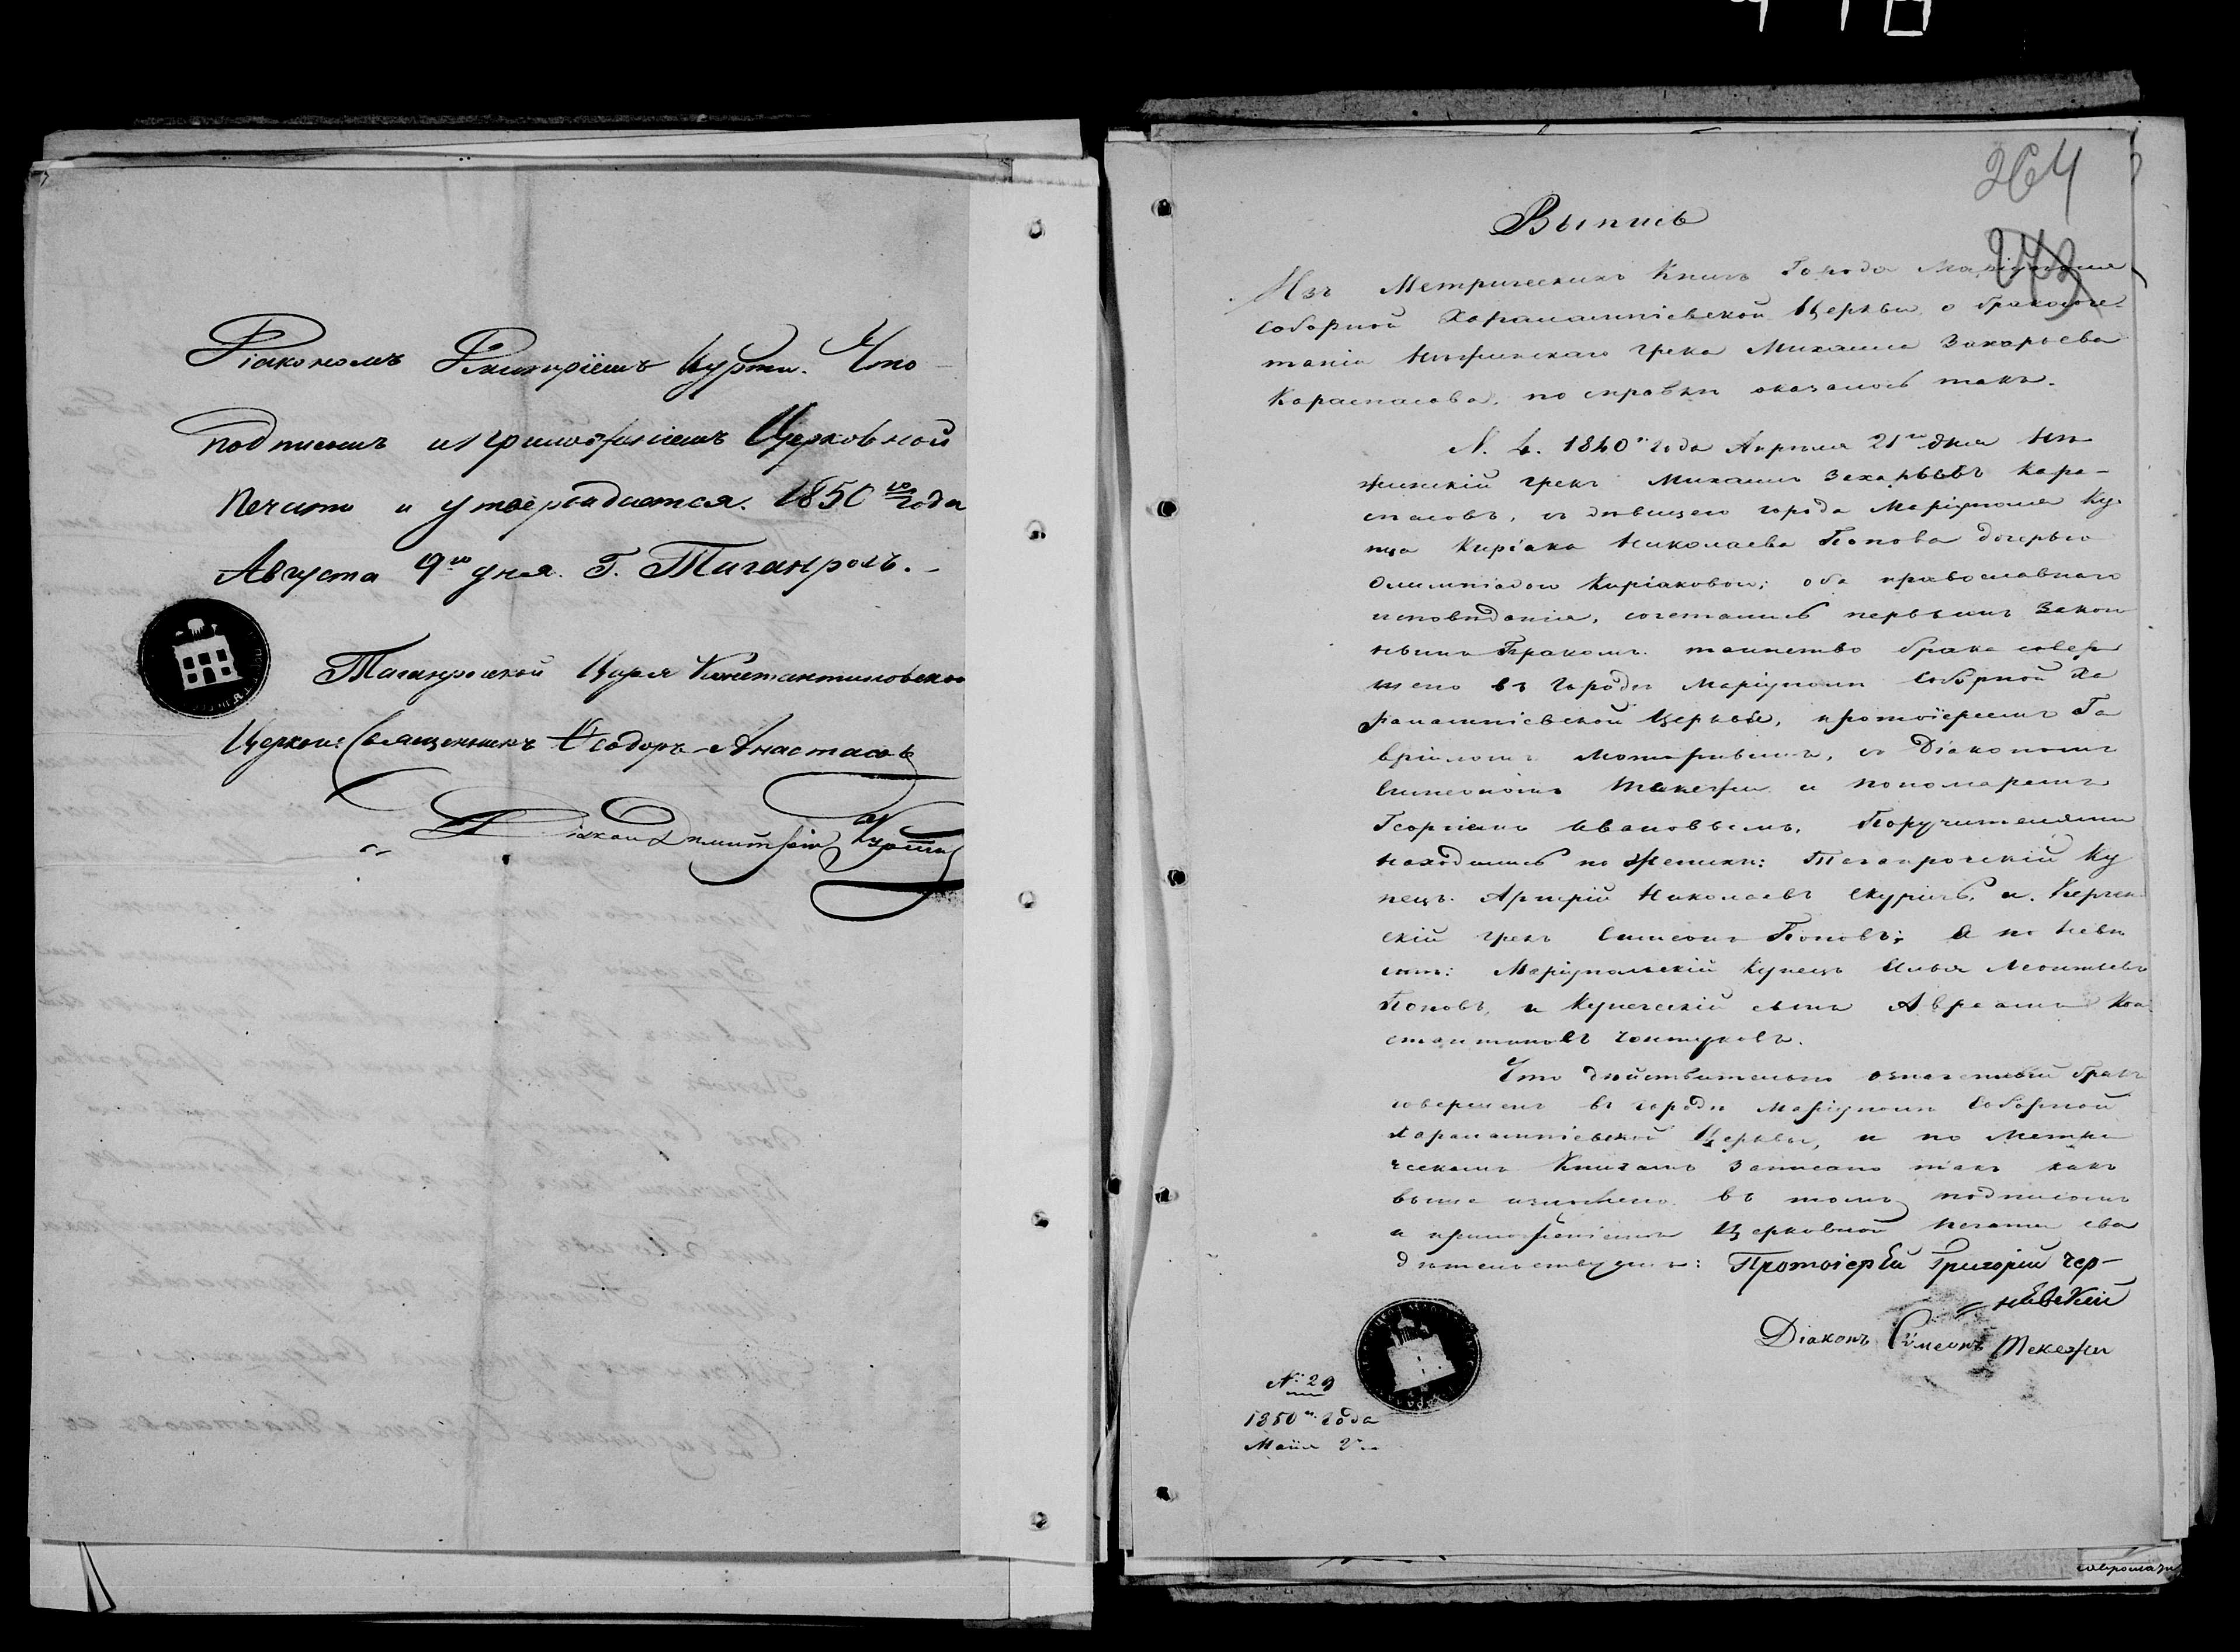 Діакономъ Димитріемъ Курти. Что
подписомъ и приложеніемъ Церковной
печати и утверждается. 1850го года
Августа 9го дня. Г. Таганрогъ.
Таганрогской Царе Константиновской
Церкви: Священникъ Ѳеодоръ Анастасовъ
Діаконъ Димитрій Курти
264
Выпись
Изъ Метрическихъ Книгъ Города Маріуполя
Соборной Харалампіевской Церкви о бракосоче-
таніи Нѣжинскаго грека Михаила Захарьева
Караспасова, по справки оказалось такъ.
N. 4. 1840го года Апреля 21го дня Нѣ
жинскій грекъ Михаилъ Захарьевъ Кара-
спасовъ, съ дѣвицею города Маріуполя Ку
пца Киріака Николаева Попова дочерью
Олимпіадою Киріаковою; оба православнаго
исповѣданія, сочетались первымъ Закон
нымъ Бракомъ. таинство брака совер
шено въ городѣ Маріуполи Соборной Ха
рапампіевской Церквѣ, протоіереемъ Га
вріиломъ, съ Діакономъ
Симеономъ Текежи и пономаремъ
Георгіемъ Ивановымъ. Поручителями
находились по женихи: Таганрогскій Ку
пецъ Николаевъ и Керчен
скій грекъ Симеонъ Поповъ; а по невѣ
стѣ: Маріупольскій Купецъ Илья Леонтьевъ
Поповъ, и Купеческій сынъ Авраамъ Кон
стантиновъ Чентуковъ.
Что дѣйствительно означенный бракъ
совершенъ въ городѣ Маріуполи Соборной
Харалампіевской Церквы, и по Метри
ческимъ Книгамъ Записано такъ какъ
выше изложено. въ томъ подписомъ
и приложеніемъ Церковной печати сви
дѣтельствуемъ: Протоіерей Григорій Чер-
нявскій
Діаконъ Симеонъ Текежи
№ 29
1850го года
Маія